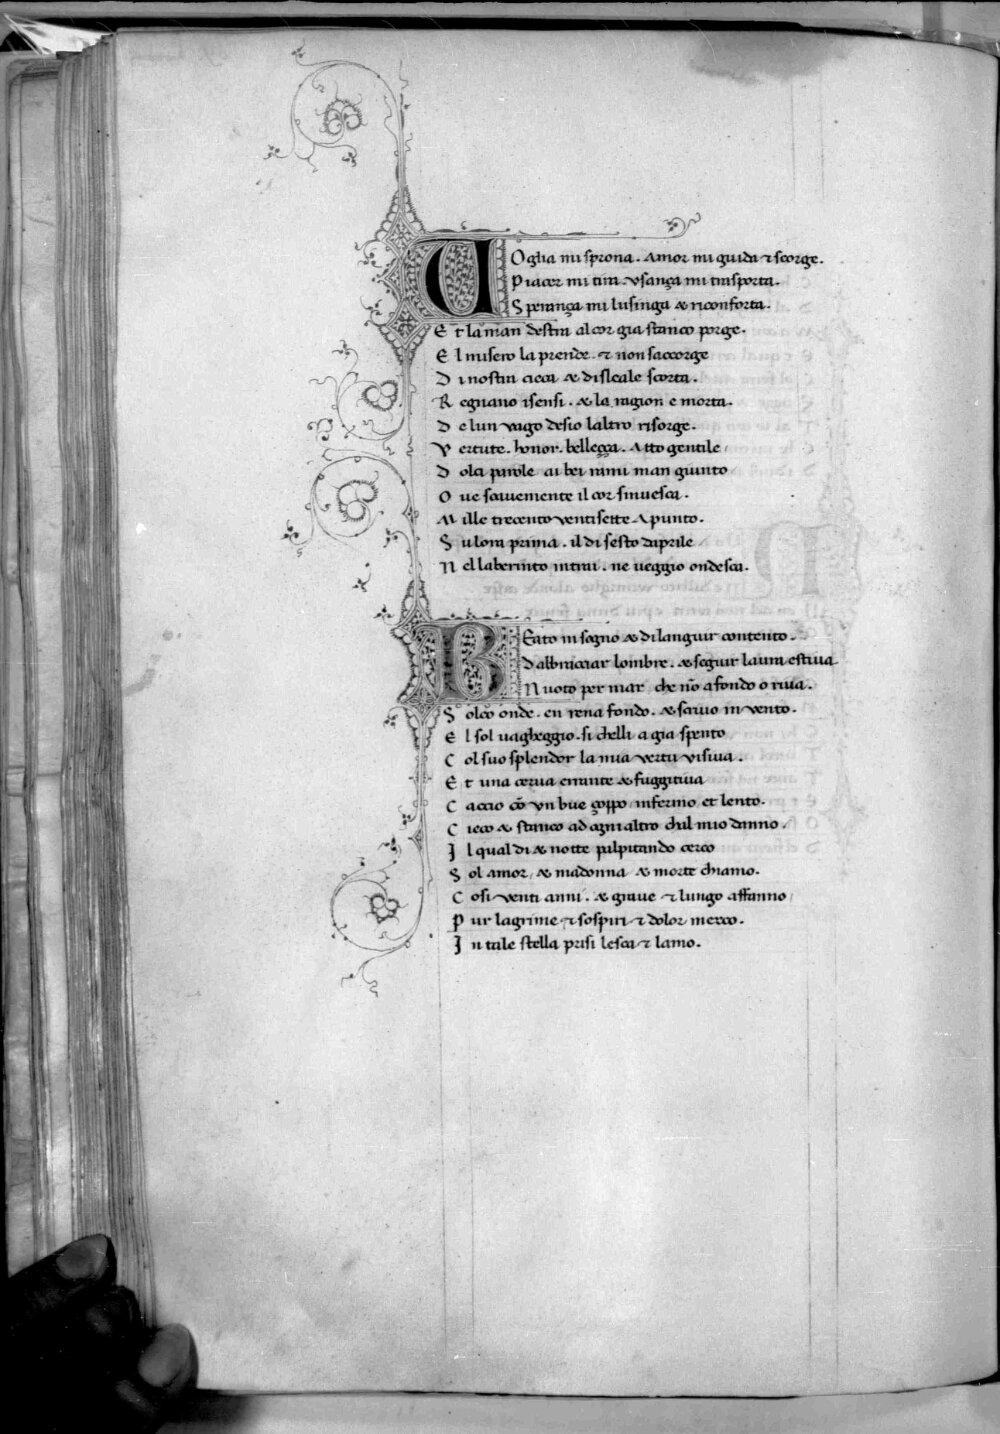 VOglia mi sprona. Amor mi guida ⁊ scorge.
Piacer mi tira. vsança mi trasporta.
Sperança mi lusinga & riconforta.
Et la man destra al cor gia stanco porge.
El misero la prende. ⁊ non saccorge
Di nostra cieca & disleale scorta.
Regnano isensi. & la ragion e morta.
De lun vago desio laltro risorge.
Vertute. honor. belleçça. Atto gentile
Dolci parole ai bei rami man giunto
Oue soauemente il cor sinuesca.
Mille trecento ventisette Apunto.
Su lora prima. il di sesto daprile
Nel laberinto intrai. ne ueggio ondesca.
BEato in sogno & di languir contento.
Dabbracciar lombre. & seguir laura estiua.
Nuoto per mar che nõ a fondo o riua.
Solco onde. en rena fondo. & scriuo in vento.
El sol uagheggio. si chelli a gia spento
Col suo splendor la mia vertu visiua.
Et una cerua errante & fuggitiua
Caccio cõ vn bue çoppo infermo et lento.
Cieco & stanco ad ogni altro chal mio danno.
Il qual di & notte palpitando cerco
Sol amor, & madonna & morte chiamo.
Cosi venti anni. & graue ⁊ lungo affanno
Pur lagrime ⁊ sospiri ⁊ dolor merco.
In tale stella presi lesca ⁊ lamo.